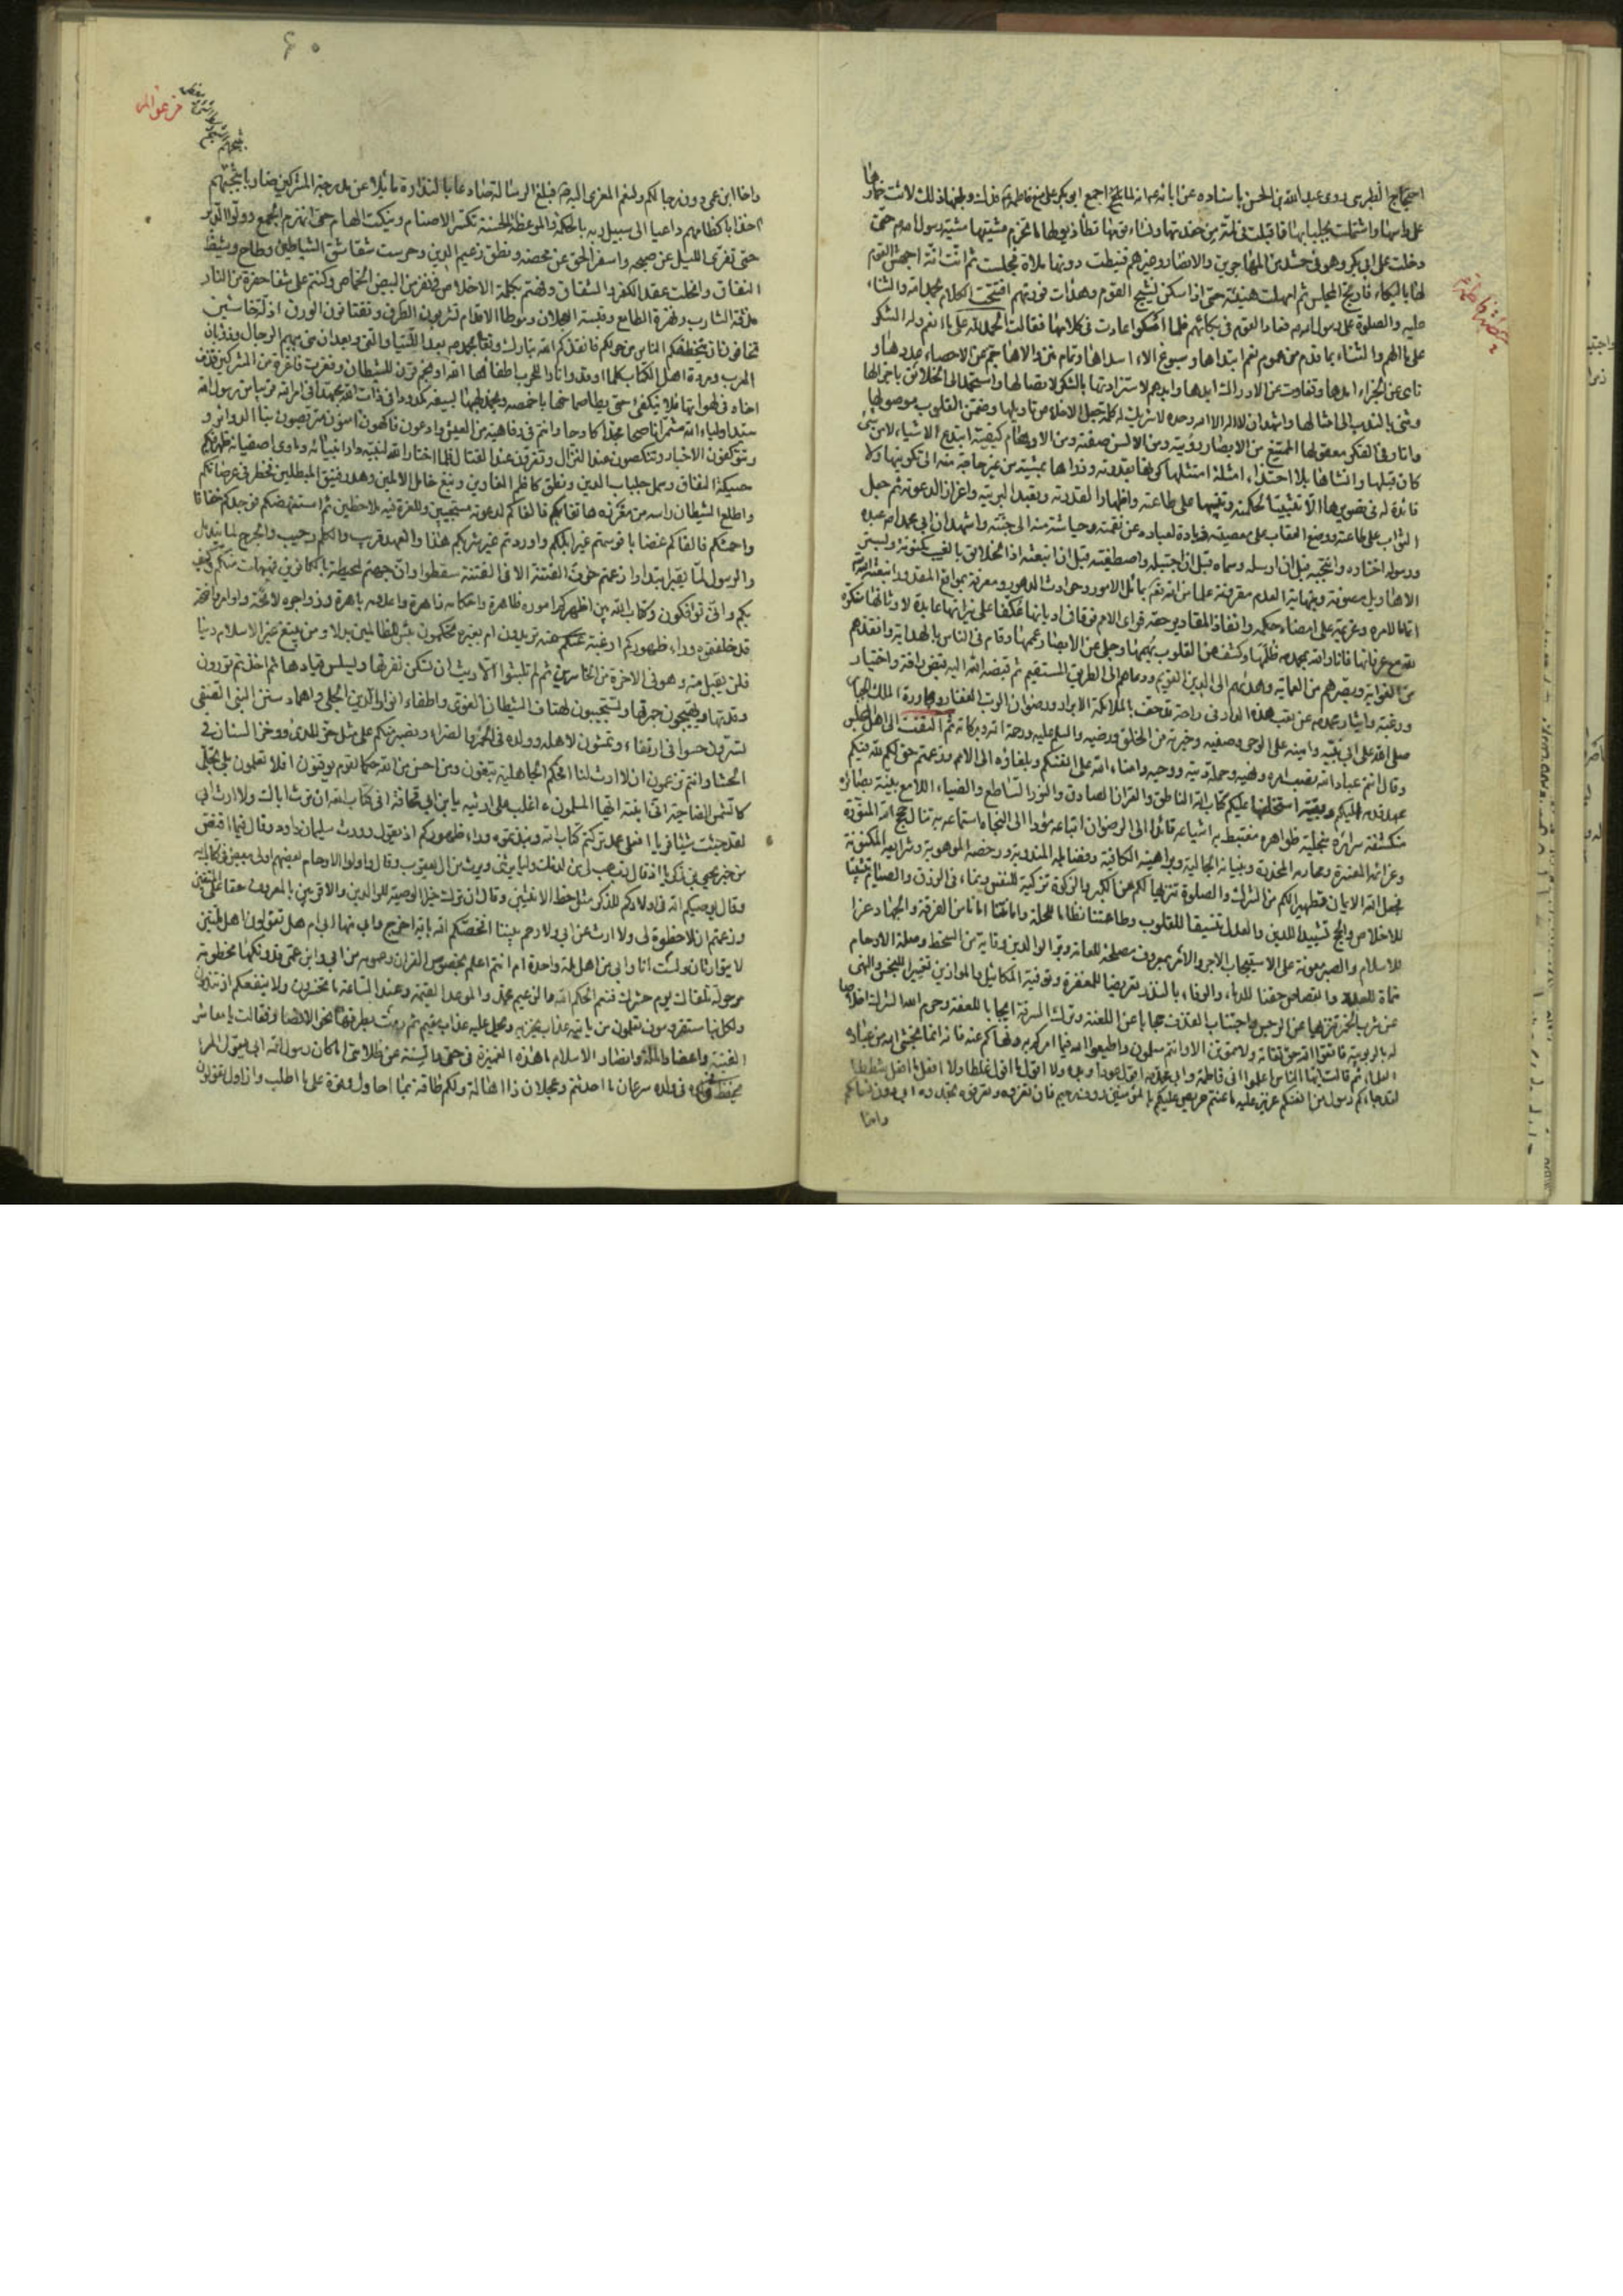 احتجاج الطبرسى روى عبد الله بن الحسن باسناده عن ابائه عم انه لما اجمع ابو بكر على منع فاطمة فدك وبلغها ذلك لاثت خمارها
على راسها واشتملت بجلبابها واقبلت فى لمة من حفدتها ونساء قومها تطأ ذيولها ما تخرم مشيتها مشية رسول الله ص حتى
دخلت على ابى بكر وهو فى حشد من المهاجرين والانصار وغيرهم فنيطت دونها ملاءة فجلست ثم انت انة اجهش القوم
لها بالبكاء فارتج المجلس ثم امهلت هنيئة حتى اذا سكن نشيج القوم وهدات فورتهم افتتحت الكلام بحمد الله والثناء
عليه والصلوة على رسول الله ص فعاد القوم فى بكائهم فلما امسكوا عادت فى كلامها فقالت الحمد لله على ما انعم وله الشكر
على ما الهم والثناء بما قدم من عموم نعم ابتداها وسبوغ الاء اسداها وتمام منن والاها جم عن الاحصاء عددها و
ناى عن الجزاء امدها وتفاوت عن الادراك ابدها وندبهم لاستزادتها بالشكر لاتصالها واستحمد الى الخلائق باجزالها
وثنى بالندب الى امثالها واشهد ان لا اله الا الله وحده لا شريك له كلمة جعل الاخلاص تاويلها وضمن القلوب موصولها
وانار فى الفكر معقولها الممتنع من الابصار رؤيته ومن الالسن صفته ومن الاوهام كيفيته ابتدع الاشياء لا من شئ
كان قبلها وانشاها بلا احتذاء امثلة امتثلها كونها بقدرته وذراها بمشيته من غير حاجة منه الى تكوينها ولا
فائدة له فى تصويرها الا تثبيتا لحكمته وتنبيها على طاعته واظهارا لقدرته وتعبدا لبريته واعزازا لدعوته ثم جعل
الثواب على طاعته ووضع العقاب على معصيته ذيادة لعباده عن نقمته وحياشة منه الى جنته واشهد ان ابى محمد ص عبده
ورسوله اختاره وانتجبه قبل ان ارسله وسماه قبل ان اجتبله واصطفيه قبل ان ابتعثه اذ الخلائق بالغيب مكنونة وبستر
الاهاويل مصونة وبنهاية العدم مقرونة علما من الله تعم بمائل الامور وحوادث الدهور ومعرفة بمواقع المقدور ابتعثه الله
اتماما لامره وعزيمة على امضاء حكمه وانفاذا لمقادير حتمه فراى الامم فرقا فى اديانها عكفا على نيرانها عابدة لاوثانها منكرة
لله مع عرفانها فانار الله بمحمد ص ظلمها وكشف عن القلوب بهمها وجلى عن الابصار غممها وقام فى الناس بالهداية وانقذهم
من الغواية وبصرهم من العماية وهداهم الى الدين القويم ودعاهم الى الطريق المستقيم ثم قبضه الله اليه قبض رافة واختيار
ورغبة وايثار بمحمد ص عن تعب هذه الدار فى راحة قد حف بالملائكة الابرار ورضوان الرب الغفار ومجاورة الملك الجبار
صلى الله على ابى نبيه وامينه على الوحى وصفيه وخيرته من الخلق ورضيه والسلم عليه ورحمة الله وبركاته ثم التفتت الى اهل المجلس
وقال انتم عباد الله نصب امره ونهيه وحملة دينه ووحيه وامناء الله على انفسكم وبلغاؤه الى الامم وزعمتم حق لكم لله فيكم
عهد قدمه اليكم وبقية استخلفها عليكم كتاب الله الناطق والقران الصادق والنور الساطع والضياء اللامع بينة بصائره
منكشفة سرائره متجلية ظواهره مغتبط به اشياعه قائد الى الرضوان اتباعه مؤد الى النجاة استماعه به تنال حجج الله المنورة
وعزائمه المفسرة ومحارمه المحذرة وبيناته الجالية وبراهينه الكافية وفضائله المندوبة ورخصه الموهوبة وشرايعه المكتوبة
فجعل الله الايمان تطهيرا لكم من الشرك والصلوة تنزيها لكم عن الكبر والزكوة تزكية للنفس ونماء فى الرزق والصيام تثبيتا
للاخلاص والحج تشييدا للدين والعدل تنسيقا للقلوب وطاعتنا نظاما للملة وامامتنا امانا من الفرقة والجهاد عزا
للاسلام والصبر معونة على الاستيجاب الاجر والامر بمعروف مصلحة للعامة وبر الوالدين وقاية من السخط وصلة الارحام
نماة للعدد والقصاص حقنا للدماء والوفاء بالنذر تعريضا للمغفرة وتوفية المكائيل والموازين تغييرا للبخس والنهى
عن شرب الخمر تنزيها عن الرجس واجتناب القذف حجابا عن اللعنة وترك السرقة ايجابا للعفة وحرم الله الشرك اخلاصا
له بالربوبية فاتقوا الله حق تقاته ولا تموتن الا وانتم مسلمون واطيعوا الله فيما امركم به ونهاكم عنه فانه انما يخشى الله من عباده
العلماء ثم قالت ايها الناس اعلموا انى فاطمة وابى محمد ص اقول عودا وبدءا ولا اقول ما اقول غلطا ولا افعل ما افعل شططا
لقد جاءكم رسول من انفسكم عزيز عليه ما عنتم حريص عليكم بالمؤمنين رؤف رحيم فان تعزوه وتعرفوه تجدوه ابى دون نسائكم
واخا
خطبة فاطمة
٤٠
واخا ابن عمى دون رجالكم ولنعم المعزى اليه ص فبلغ الرسالة صادعا بالنذارة مائلا عن مدرجة المشركين ضاربا ثبجهم
اخذا باكظامهم داعيا الى سبيل ربه بالحكمة والموعظة الحسنة تكسر الاصنام وينكت الهام حتى انهزم الجمع وولوا الدبر
حتى تفرى الليل عن صبحه واسفر الحق عن محضه ونطق زعيم الدين وخرست شقاشق الشياطين وطاح وشيظ
النفاق وانحلت عقد الكفر والشقاق وفهتم بكلمة الاخلاص فى نفر من البيض الخماص وكنتم على شفا حفرة من النار
مذقة الشارب ونهزة الطامع وقبسة العجلان وموطا الاقدام تشربون الطرق وتقتاتون الورق اذلة خاسئين
تخافون ان يتخطفكم الناس من حولكم فانقذكم الله تبارك وتعا بمحمد ص بعد اللتيا والتى وبعد ان منى ببهم الرجال وذؤبان
العرب ومردة اهل الكتاب كلما اوقدوا نارا للحرب اطفاها الله او نجم قرن للشيطان وفغرت فاغرة من المشركين قذف
اخاه فى لهواتها فلا ينكفى حتى يطا صماخها باخمصه ويخمد لهبها بسيفه مكدودا فى ذات الله مجتهدا فى امر الله قريبا من رسول الله
سيد اولياء الله مشمرا ناصحا مجدا كادحا وانتم فى رفاهية من العيش وادعون فاكهون امنون تتربصون بنا الدوائر و
وتتوكفون الاخبار وتنكصون عند النزال وتفرون عند القتال فلما اختار الله لنبيه دار انبيائه وماوى اصفيائه ظهر فيكم
حسيكة النفاق وسمل جلباب الدين ونطق كاظم الغاوين ونبغ خامل الاقلين وهدر فنيق المبطلين فخطر فى عرصاتكم
واطلع الشيطان راسه من مغرزه هاتفا بكم فالفاكم لدعوته مستجيبين وللغرة فيه ملاحظين ثم استنهضكم فوجدكم خفافا
واحمشكم فالفاكم غضابا فوسمتم غير ابلكم واوردتم غير شربكم هذا والعهد قريب والكلم رحيب والجرح لما يندمل
والرسول لما يقبر ابتدارا زعمتم خوف الفتنة الا فى الفتنة سقطوا وان جهنم لمحيطة بالكافرين فهيهات منكم وكيف
بكم وانى تؤفكون وكتاب الله بين اظهركم اموره ظاهرة واحكامه زاهرة واعلامه باهرة وزواجره لائحة واوامره واضحة
قد خلفتموه وراء ظهوركم ارغبة عنه تريدون ام بغيره تحكمون بئس للظالمين بدلا ومن يبتغ غير الاسلام دينا
فلن يقبل منه وهو فى الاخرة من الخاسرين ثم لم تلبثوا الا ريث ان تسكن نفرتها ويسلس قيادها ثم اخذتم تورون
وقدتها وتهيجون جمرتها وتستجيبون لهتاف الشيطان الغوى واطفاء انوار الدين الجلى واهماد سنن النبى الصفى
تسرون حسوا فى ارتغاء وتمشون لاهله وولده فى الخمر والضراء ونصبر منكم على مثل حز المدى ووخز السنان فى
الحشا وانتم تزعمون ان لا ارث لنا افحكم الجاهلية تبغون ومن احسن من الله حكما لقوم يوقنون افلا تعلمون بلى تجلى
كالشمس الضاحية انى ابنته ايها المسلمون ءاغلب على ارثيه يا بن ابى قحافة افى كتاب الله ان ترث اباك ولا ارث ابى
لقد جئت شيئا فريا افعلى عمد تركتم كتاب الله ونبذتموه وراء ظهوركم اذ يقول وورث سليمان داود وقال فيما اقتص
من خبر يحيى بن زكريا اذ قال رب هب لى من لدنك وليا يرثنى ويرث من ال يعقوب وقال واولوا الارحام بعضهم اولى ببعض فى كتاب الله
وقال يوصيكم الله فى اولادكم للذكر مثل حظ الانثيين وقال ان ترك خيرا الوصية للوالدين والاقربين بالمعروف حقا على المتقين
وزعمتم ان لا حظوة لى ولا ارث من ابى ولا رحم بيننا افخصكم الله باية اخرج ابى منها ام هل تقولون اهل ملتين
لا يتوارثان ولست انا وابى من اهل ملة واحدة ام انتم اعلم بخصوص القران وعمومه من ابى وابن عمى فدونكها مخطومة
مرحولة تلقاك يوم حشرك فنعم الحكم الله والزعيم محمد والموعد القيمة وعند الساعة ما تخسرون ولا ينفعكم اذ تندمون
ولكل نبا مستقر وسوف تعلمون من ياتيه عذاب يخزيه ويحل عليه عذاب مقيم ثم رمت بطرفها نحو الانصار فقالت يا معاشر
الفتية واعضاد الملة وانصار الاسلام ما هذه الغميزة فى حقى والسنة عن ظلامتى اما كان رسول الله ابى يقول المرء
يحفظ فى ولده سرعان ما احدثتم وعجلان ذا اهالة ولكم طاقة بما احاول وقوة على ما اطلب وازاول اتقولون